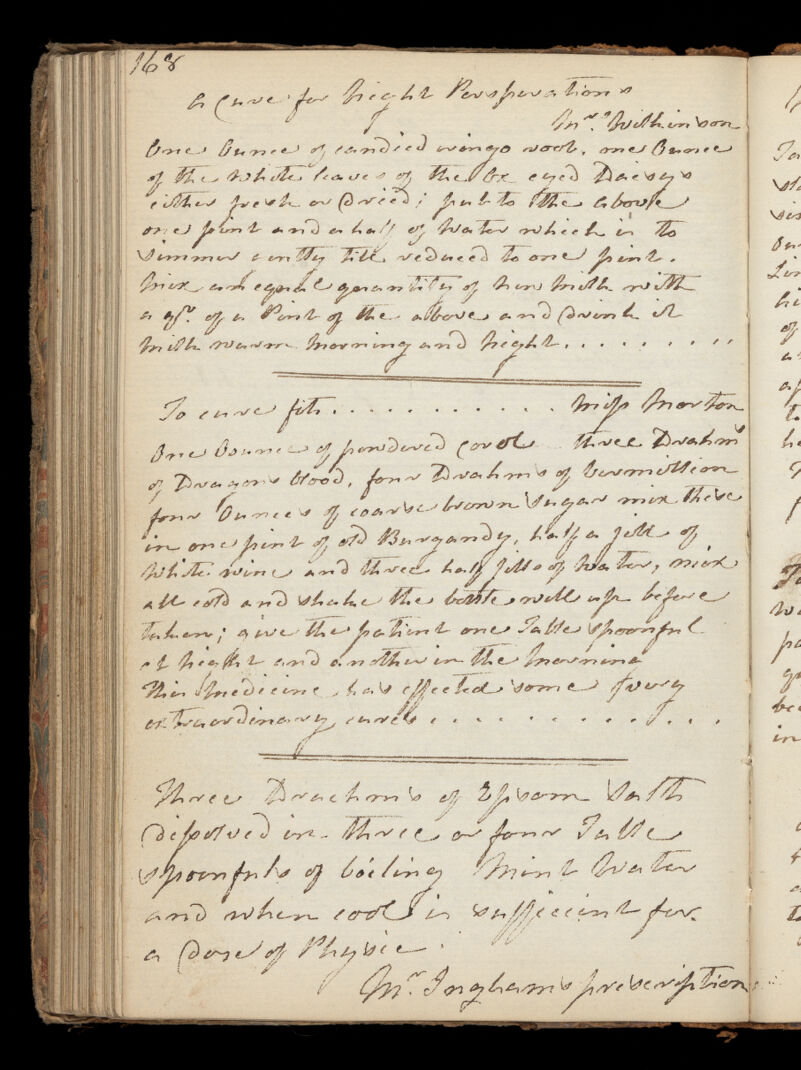 168
a Cure for Night Persperations
Mrs. Wilkinson
One Ounce of candied eringo root, one Ounce
of the White leaves of the Ox eyed Daisys
either fresh or Dried; put to the above
one pint and a half of Water which is to
simmer gently till reduced to one pint.
Mix an equal quantity of New Milk with
a qr. of a Pint of the above and Drink it
Milk warm Morning and Night.........
To cure fits............ Miss Morton
One Ounce of powdered Corol three Drahms
of Dragons blood, four Drahms of Vermillion
four Ounces of coarse brown sugar mix these
in one pint of old Burgandy, half a jill of
White wine and three half jills of Water, mix
all cold and shake the bottle well up before
taken; give the patient one Table spoonful
at Night and another in the Morning
this Medicine has effected some very
extraordinary cures.............
Three Drachms of Epsom Salts
disolved in three or four Table
spoonfuls of boiling Mint Water
and when cool is sufficient for
a Dose of Physic.
Mr. Inghams prescription